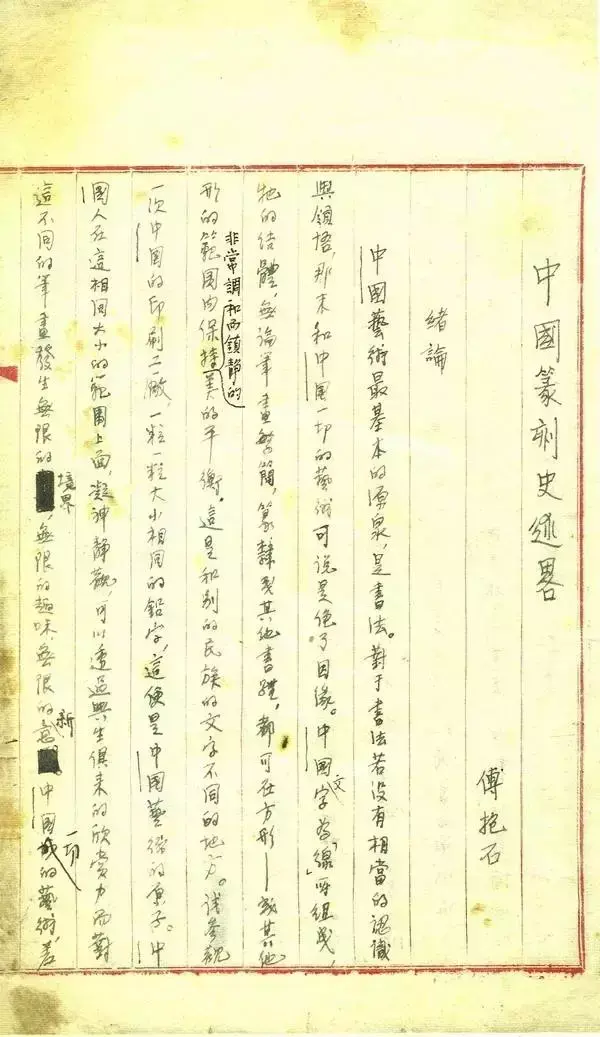 中國篆刻史述畧
傅抱石
緒論
中国藝術最基本的源泉，是書法。對于書法若没有相當的認識
與領悟，那末和中国一切的藝術可说是绝了因缘。中国文字為「線」所組成，
牠的结體，無論筆畫繁簡，篆隸或其他書體，都可在方形—或其他
形的範围内保持非常調和而鎮静的美的平衡。這是和别的民族的文字不同的地方。试参觀
一次中国的印刷工廠，一粒一粒大小相同的鉛字，這便是中国藝術的原子。中
國人在這相同大小的範圍上面，凝神静觀，可以透過與生俱来的欣賞力而對
這不同的筆畫發生無限的境界，無限的趣味，無限的新意。中国一切的藝術，差